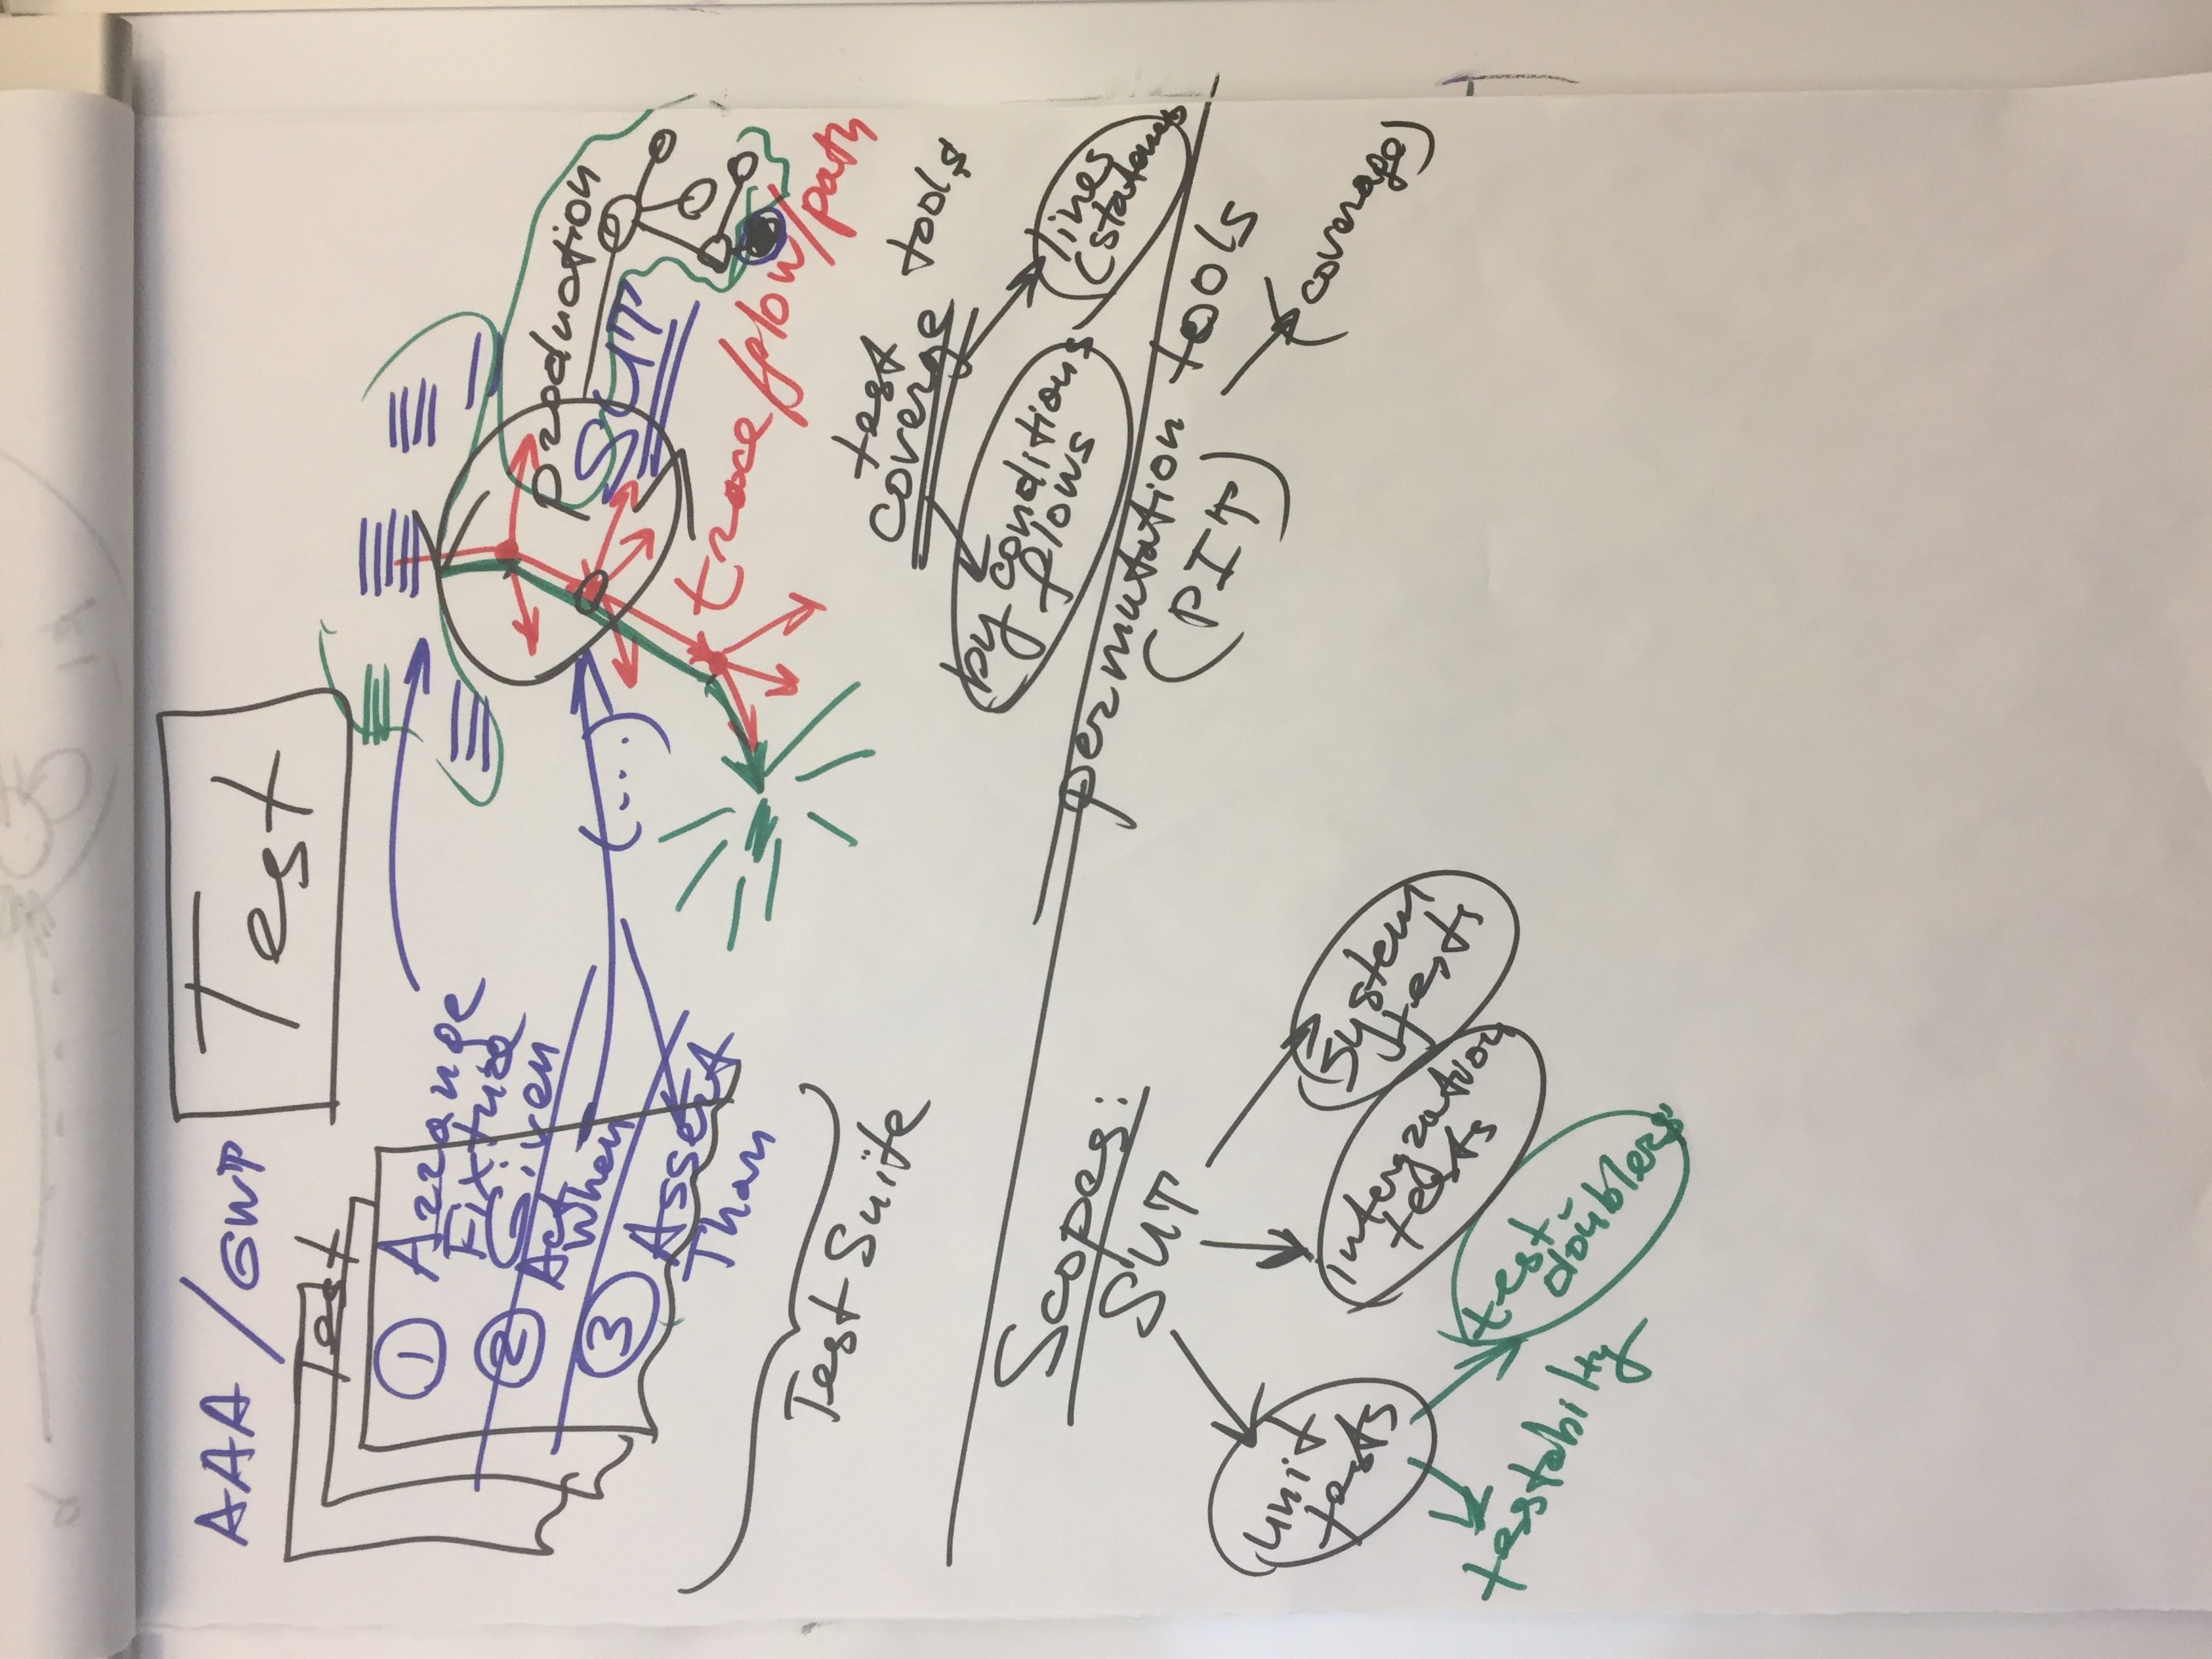 AAA / GWT
Test
Test
1 Arrange
Fixture
Given
2 Act
When
3 Assert
Than
(...)
production
SUT
trace/flow/path
Test Suite
test
coverge tools
by conditions
flows
lines
Scopes:
SUT
permutation tools
(PIT)
(coverage)
unit
tests
Intergration
tests
System
tests
testabilty
test
doubles